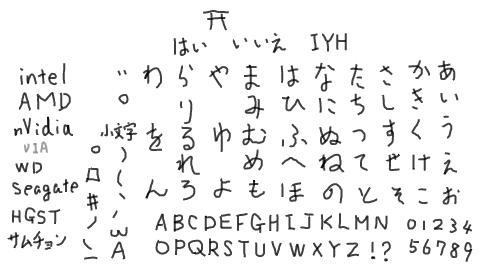 はい いいえ IYH
intel ゛ わ ら や ま は な た さ か あ
AMD ゜ り み ひ に ち し き い
nVidia 小文字 を る ゆ む ふ ぬ つ す く う
VIA 。 )
WD ロ ( れ め へ ね て せ け え
Seagate # 、 ん ろ よ も ほ の と そ こ お
HGST ノ ω ABCDEFGHIJKLMN 01234
サムチョン \ _ A OPQRSTUVWXYZ!? 56789